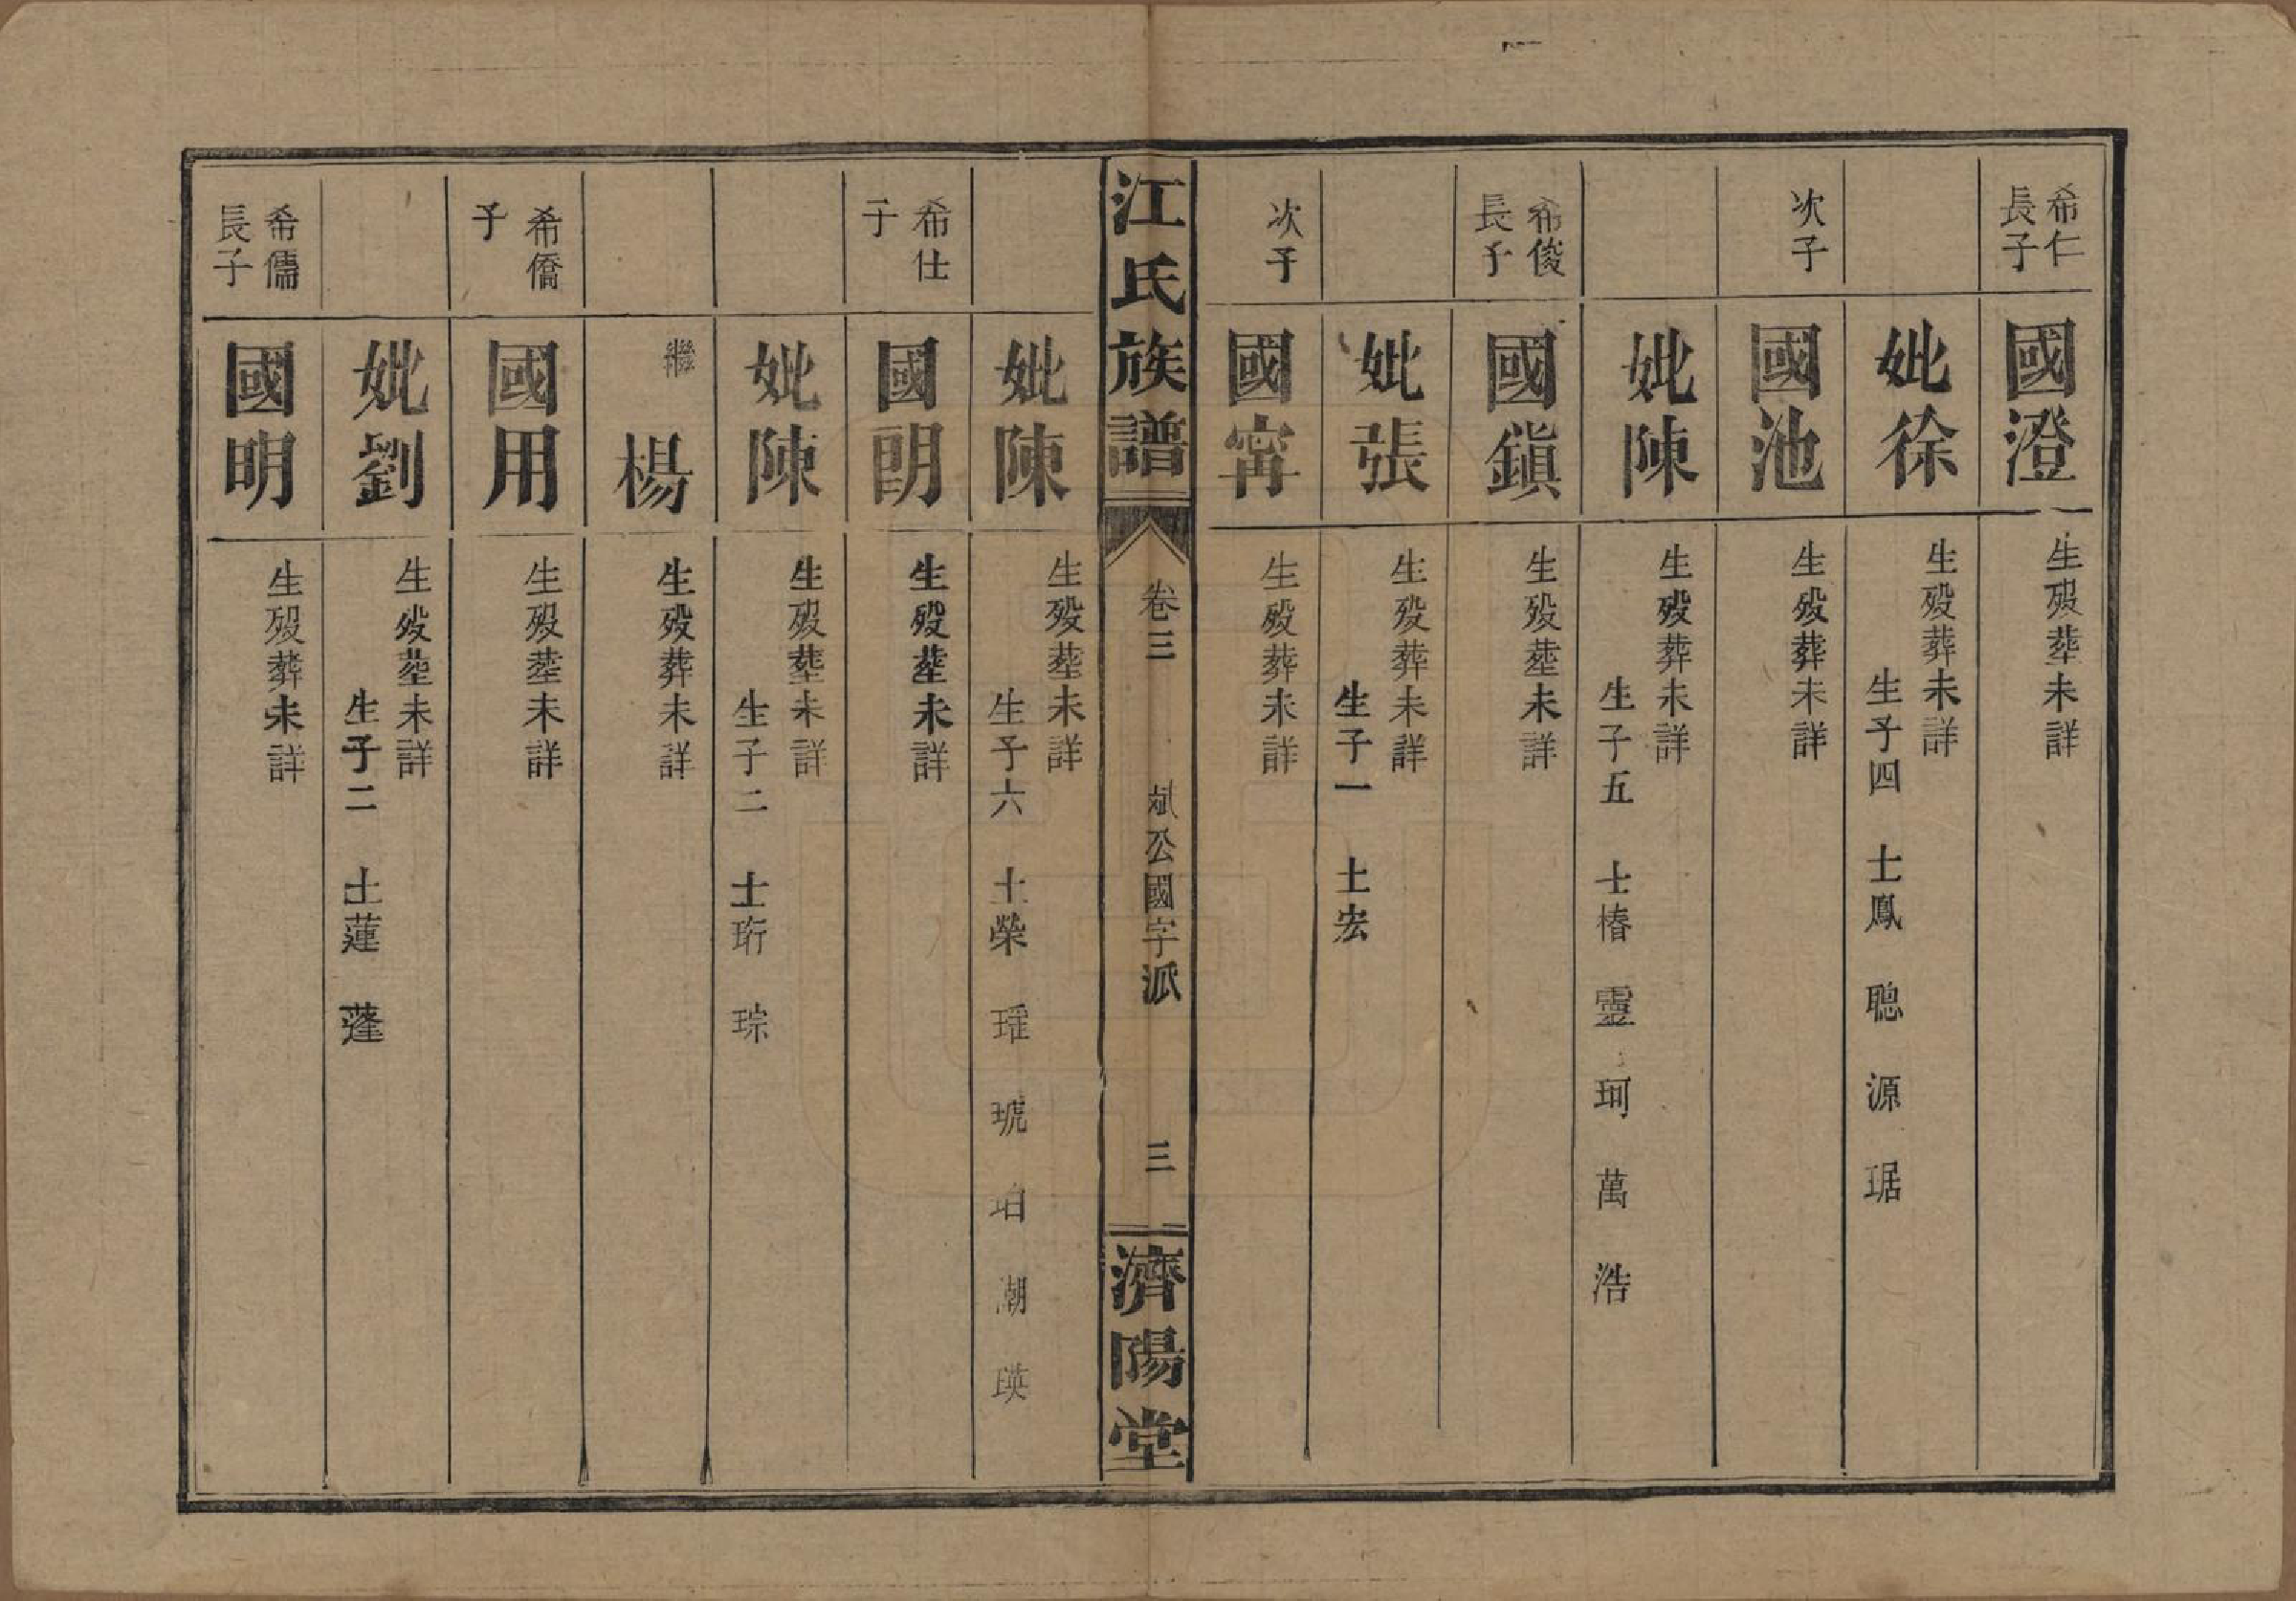 希仁
長子
國澄
生歿塟未詳
妣徐
生歿葬未詳
生子四　士鳳　聰　源　琚
次子
國池
生歿葬未詳
妣陳
生歿葬未詳
生子五　士椿　靈　珂　萬　浩
希俊
長子
國鎭
生歿塟未詳
妣張
生歿葬未詳
生子一　士宏
次子
國甯
生歿葬未詳
江氏族譜
卷三
斌公國字派
三
濟陽堂
妣陳
生歿塟未詳
生子六　士榮　瑶　琥　珀　潮　瑛
希仕
子
國朗
生歿塟未詳
妣陳
生歿塟未詳
生子二　士珩　琮
繼楊
生歿葬未詳
希僑
子
國用
生歿塟未詳
妣劉
生歿塟未詳
生子二　士蓮　蓬
希儒
長子
國明
生歿葬未詳